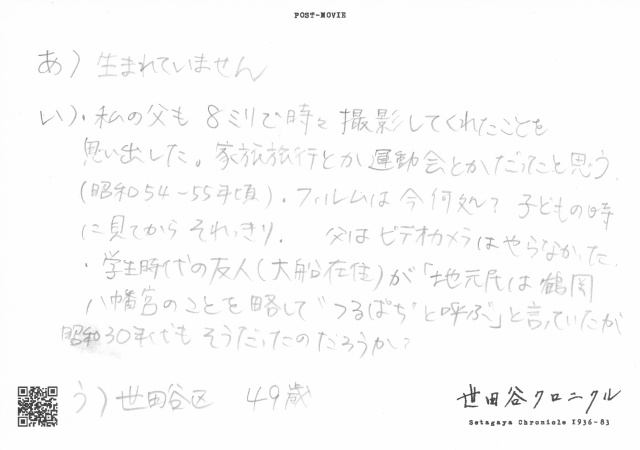 POST-MOVIE
あ) 生まれていません
い)・私の父も 8ミリで時々 撮影してくれたことを
思い出した。家族旅行とか運動会とかだったと思う。
(昭和54-55年頃)。フィルムは今何処? 子どもの時
に見てからそれっきり。 父はビデオカメラはやらなかった。
・学生時代の友人(大船在住)が「地元民は鶴岡
八幡宮のことを略して"つるぱち"と呼ぶ」と言っていたが
昭和30年代も そうだったのだろうか?
う) 世田谷区 49歳
世田谷クロニクル
Setagaya Chronicle 1936-83